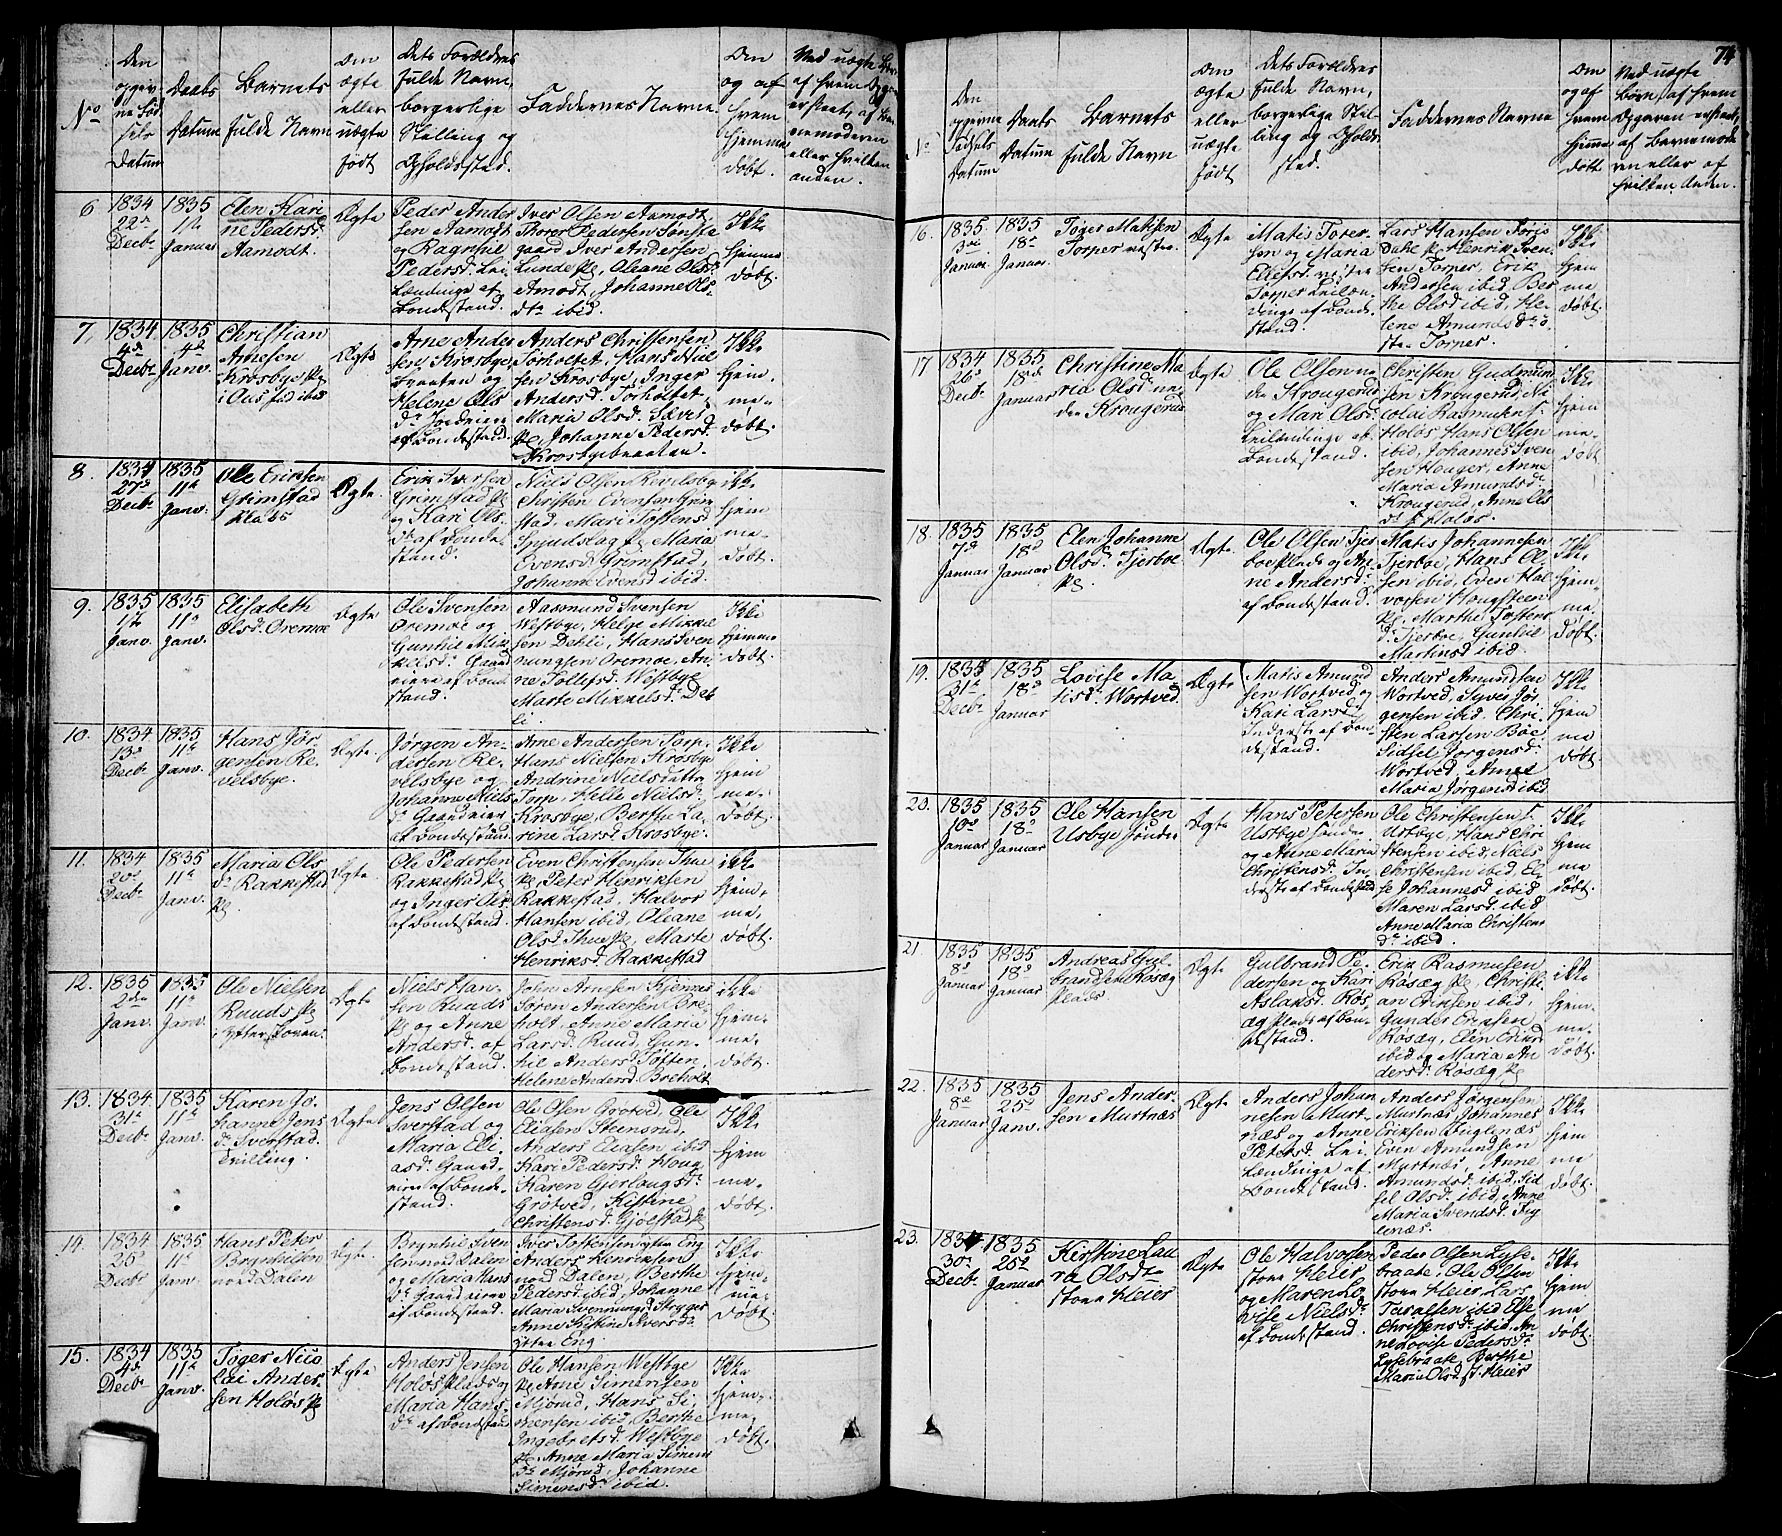 Den
opgiv-
ne Fød
sels
Datum
No
Daabs
Datum
Barnets
fulde Navn
Om
ægte
eller
uægte
født
Dets Forældres
fulde Navn,
borgerlige
Stilling og
Opholdssted.
Faddernes Navne
Om
og af
hvem
hjemme
døbt.
eller hvilken
anden.
6
1834
22de
Decbr
1835
Januar
Elen Kari
ne Pedersd.
Aamodt.
Ægte
Peder Ander
sen Aamodt
og Ragnhil
Pedersd. Lei
lændinge af
Bondestand.
Iver Olsen Aamodt,
Thorer Pedersen
gaard Iver Andersen
Lunde Pl, Oleane Olsd.
Amodt, Johanne Ols-
dtr ibid.
Ikke
hjemme
døbt.
7,
1834.
4de
Decbr
1835
4de
Janv.
Christian
Arnesen
Krosbye Pl
Ægte
Arne Ander
sen Krosbye
braaten og
Helene Ols
dr
af Bondestand.
Anders Christensen
Torholtet, Hans Niel
sen Krosbye, Inger
Andersd. Torholtet,
Maria Olsd.
Pl, Johanne Pedersd.
Krosbyebraaten.
Ikke
hjem.
me-
døbt.
8.
1834
27de
Decbr
1835
11te
Janv.
Ole Eriksen
Grimstad
Plads
Ægte.
Erik Iversen
Grimstad Pl
og Kari Ols
dr af Bonde-
stand.
Niels Olsen Revelsby
Svristen Evensen Grim
stad. Mari Tostens
Spydslag Pl, Maria
Evensd. Grimstad,
Johanne Evensd ibid.
ikke
hjem
me-
døbt.
9.
1835
1te
Janv.
1835
11te
Janv.
Elisabeth
Olsd. Oremoe
Ægte
Ole Svensen
Oremoe og
Gunhil Mik
kelsd. Gaard
eiere af Bonde
stand.
Aasmund Svensen
Westbye, Helge Mikkel
sen Dehli, Hans Sven
nungsen Oremoe, An-
ne Tollefsd. Westbye
Marte Mikkelsd. Deh
li.
Ikke
hjemme
døbt.
10.
1834
13de
Decbr
1835
11te
Janv.
Hans Jør
gensen Re
velsbye.
Ægte.
Jørgen An-
dersen Re-
velsbye og
Johanne Niels
dr Gaardeiere
af Bondestand.
Arne Andersen Torp,
Hans Nielsen Krosbye
Andrine Nielsdatter
Torp, Helle Nielsd.
Krosbye, Berthe La-
rine Larsd. Krosbye.
Ikke
hjem
me.
døbt.
11.
1834
20de
Decbr
1835
11te
Janv.
Maria Ols
dr Rakkestad
Pl
Ægte
Ole Pedersen
Rakkestad Pl
og Inger Ols
af Bondestand.
Even Christensen Thue
Pl, Peter Henriksen
Rakkestad, Halvor
Hansen ibid, Oleane
Olsd. Thue Pl, Marte
Henriksd. Rakkestad
ikke
hjem.
me,
døbt.
12.
1835
2den
Janv.
1835
11te
Janv.
Ole Nielsen
Ruuds Pl
Ægte
Niels Han-
sen Ruuds
Pl og Anne
Andersd. af
Bondestand.
John Arnesen
Søren Andersen Bre-
holt, Anne Maria
Larsd. Ruud, Gun-
hil Andersd. Toften,
Helene Andersd. Breholt
ikke
hjem-
me-
døbt.
13.
1834
31te
Decbr
1835
11te
Janv.
Karen Jo-
hanne Jens
dr Sverstad.
Tvilling.
Ægte
Jens Olsen
Sverstad og
Maria Eli-
asd. Gaard-
eiere af Bonde-
stand.
Ole Olsen Grøtved, Ole
Eliasen Steensrud,
Anders Eliasen ibid
Kari Pedersd. Houg
Karen Gjerlougsd.
Grøtved, Kistine
Christensd. Gjølstad Pl
Ikke
hjem
me-
døbt.
14.
1834
25de
Decbr
1835
11te
Janv.
Hans Peter
Brynhilsen
nord Dalen
Ægte.
Brynhil Iver
sen nord Dalen
og Maria Hans
dr Gaardeiere
af Bondestand.
Iver Tostensen ytter Eng
Anders Henriksen
nord Dalen, Berthe
Pedersd. ibid, Johanne
Maria Svennungsd.
Anne Kistine Iversd.
ytter Eng.
Ikke
hjem-
me-
døbt.
15.
1834
4de
Decbr
1835
11te
Janv.
Tøger Nico
lai Ander-
sen Holøs Pl
Ægte
Anders Jensen
Holøs Plads og
Maria Hans-
dr af Bondestand
Ole Hansen Westbye
Pl, Arne Simensen
Mjørud, Hans Si-
mensen ibid, Berthe
Ingebretsd. Westbye
Pl, Anne Maria Simens
dr Mjørud, Johanne
Simensdr ibid.
Ikke
hjem-
me-
døbt.
74
No
Den
opgivne
Fødsels
Datum
Daabs
Datum
Barnets
fulde Navn
Om
ægte
eller
uægte
født
Dets Forældres
fulde Navn,
borgerlige Stil-
ling og Opholds-
sted.
Faddernes Navne
Om
og af
hvem
hjemme
døbt
Ved uægte
Børn, af hvem
Opgaven er skeet,
af Barnemode
ren eller af
hvilken Anden.
16.
1835
3die
Januar.
1835
18de
Januar.
Tøger Mathsen
Torper vestre.
Ægte
Matis Torer
sen og Maria
Ellefsd. vestre
Torper Leilæn-
dinge af Bonde-
stand.
Lars Hansen
Henrik Sven
sen Torper, Erik
Andersen ibid, Ber
the Olsd ibid, He-
lene Amundsdr
Torper.
Ikke
hjem
me
døbt.
17
1834
26de
Decbr
1835
18de
Januar
Christine Ma
ria Olsd. ne-
dre Krougerud
Ægte
Ole Olsen ne
dre Krougerud
og Mari Olsd.
Leilændinge af
Bondestand.
Christen Gudmund
sen Krougerud, Ni
colai Rasmussen
Holøs Hans Olsen
ibid, Johannes Sven
sen Houger, Anne
Maria Amundsd.
Krougerud, Anne Ols
dr Holøs.
Ikke
hjem
me-
døbt
18.
1835
7de
Januar
1835
18de
Januar
Elen Johanne
Olsd. Tjerboe
Pl.
Ægte
Ole Olsen Tjer
boe Plads og An-
ne Andersd.
af Bondestand.
Matis Johannesen
Tjerboe, Hans Ol
sen ibid, Even Hal
vorsen Hougsteen
Pl. Marthe Tostens
dr Tjerboe, Gunhil
Martinsd ibid.
Ikke
hjem-
me.
døbt.
19.
1835
31te
Decbr
1835
18de
Januar
Lovise Ma
tisd. Wortved
Ægte
Matis Amund
sen Wortved og
Kari Larsd.
Inderster af Bon
destand.
Anders Amundsen
Wortved, Syver Jør
gensen ibid. Chri-
sten Larsen Bøe
Sidsel Jørgensd.
Wortved, Anne
Maria Jørgensd ibid
Ikke
hjem
me
døbt.
20.
1835
10de
Januar
1835
18de
Januar
Ole Hansen
Usbye søndre
Ægte
Hans Petersen
Usbye søndre
og Anne Maria
Christensd. In-
derster af Bondestand
Ole Christensen S.
Usbye, Hans Chri
stensen ibid, Niels
Christensen ibid, El-
se Johannesd ibid
Maren Larsd. ibid
Anne Maria Christens
dr ibid.
Ikke
hjem
me
døbt.
21.
1835
8de
Januar
1835
18de
Januar
Andreas Gul-
brandsen Røsæg
Plads
Ægte
Gulbrand Pe-
dersen og Kari
Aslaksd. Røs-
æg Plads af Bon-
destand.
Erik Rasmusen
Røsæg Pl, Christi-
an Eriksen ibid,
Gunder Eriksen
Røsæg, Elen Eriksd
ibid og Maria An
dersd. Røsæg Pl
ikke
hjem-
me.
døbt.
22.
1835
8de
Januar
1835
25de
Janv.
Jens Ander-
sen Murtnæs
Ægte
Anders Johan
nesen Murt-
næs og Anne
Petersd. Lei-
lændinge af
Bondestand.
Anders Jørgensen
Murtnæs, Johannes
Eriksen Fuglenæs
Even Amundsen
Myrtnæs, Anne
Amundsd. ibid, Sid
sel Olsd. ibid, Anne
Maria Svendsd. Fug
lenæs.
Ikke
hjem
me
døbt.
23.
1834
30te
Decbr
1835
25de
Januar
Kirstine Lau
ra Olsdtr
store Heier
Ægte
Ole Halvorsen
store Heier
og Maren Lo
vise Nielsdr
af Bondestand.
Peder Olsen Lyse-
braate, Ole Olsen
store Heier, Lars
Taralsen ibid, Else
Christensdr ibid. An
ne Lovise Pedersdr
Lysebraate, Berthe
Maria Olsd St. Heier
Ikke
hjem
me
døbt.